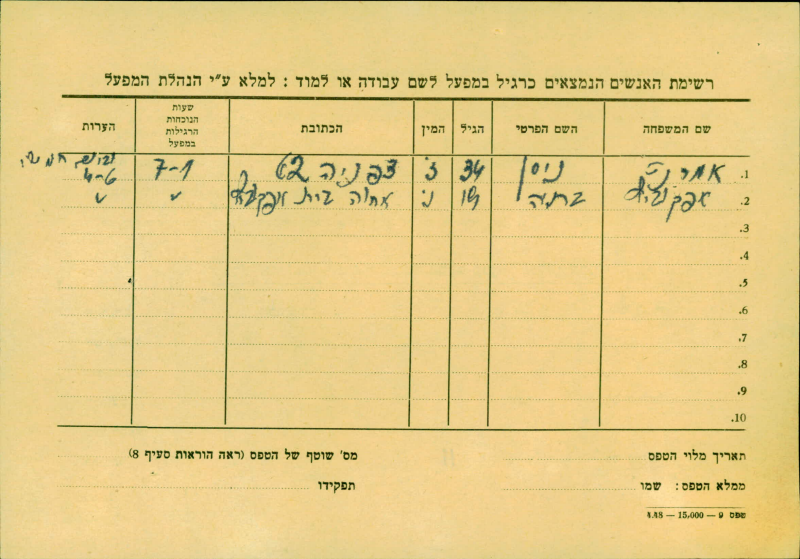 רשימת האנשים הנמצאים כרגיל במפעל לשם עבודה או למוד : למלא ע"י הנהלת המפעל
שם המשפחה השם הפרטי הגיל המין הכתובת שעות הנוכחות הרגילות במפעל הערות
1. ניסן 34 ז׳ צפניה 62 7-1 4-6
2. ברכיה נ׳ אחוה בית
3.
4.
5.
6.
7.
8.
9.
10.
תאריך מלוי הטפס מס' שוטף של הטפס (ראה הוראות סעיף 8)
ממלא הטפס : שמו תפקידו
טפס 9 — 15,000 — 4.48